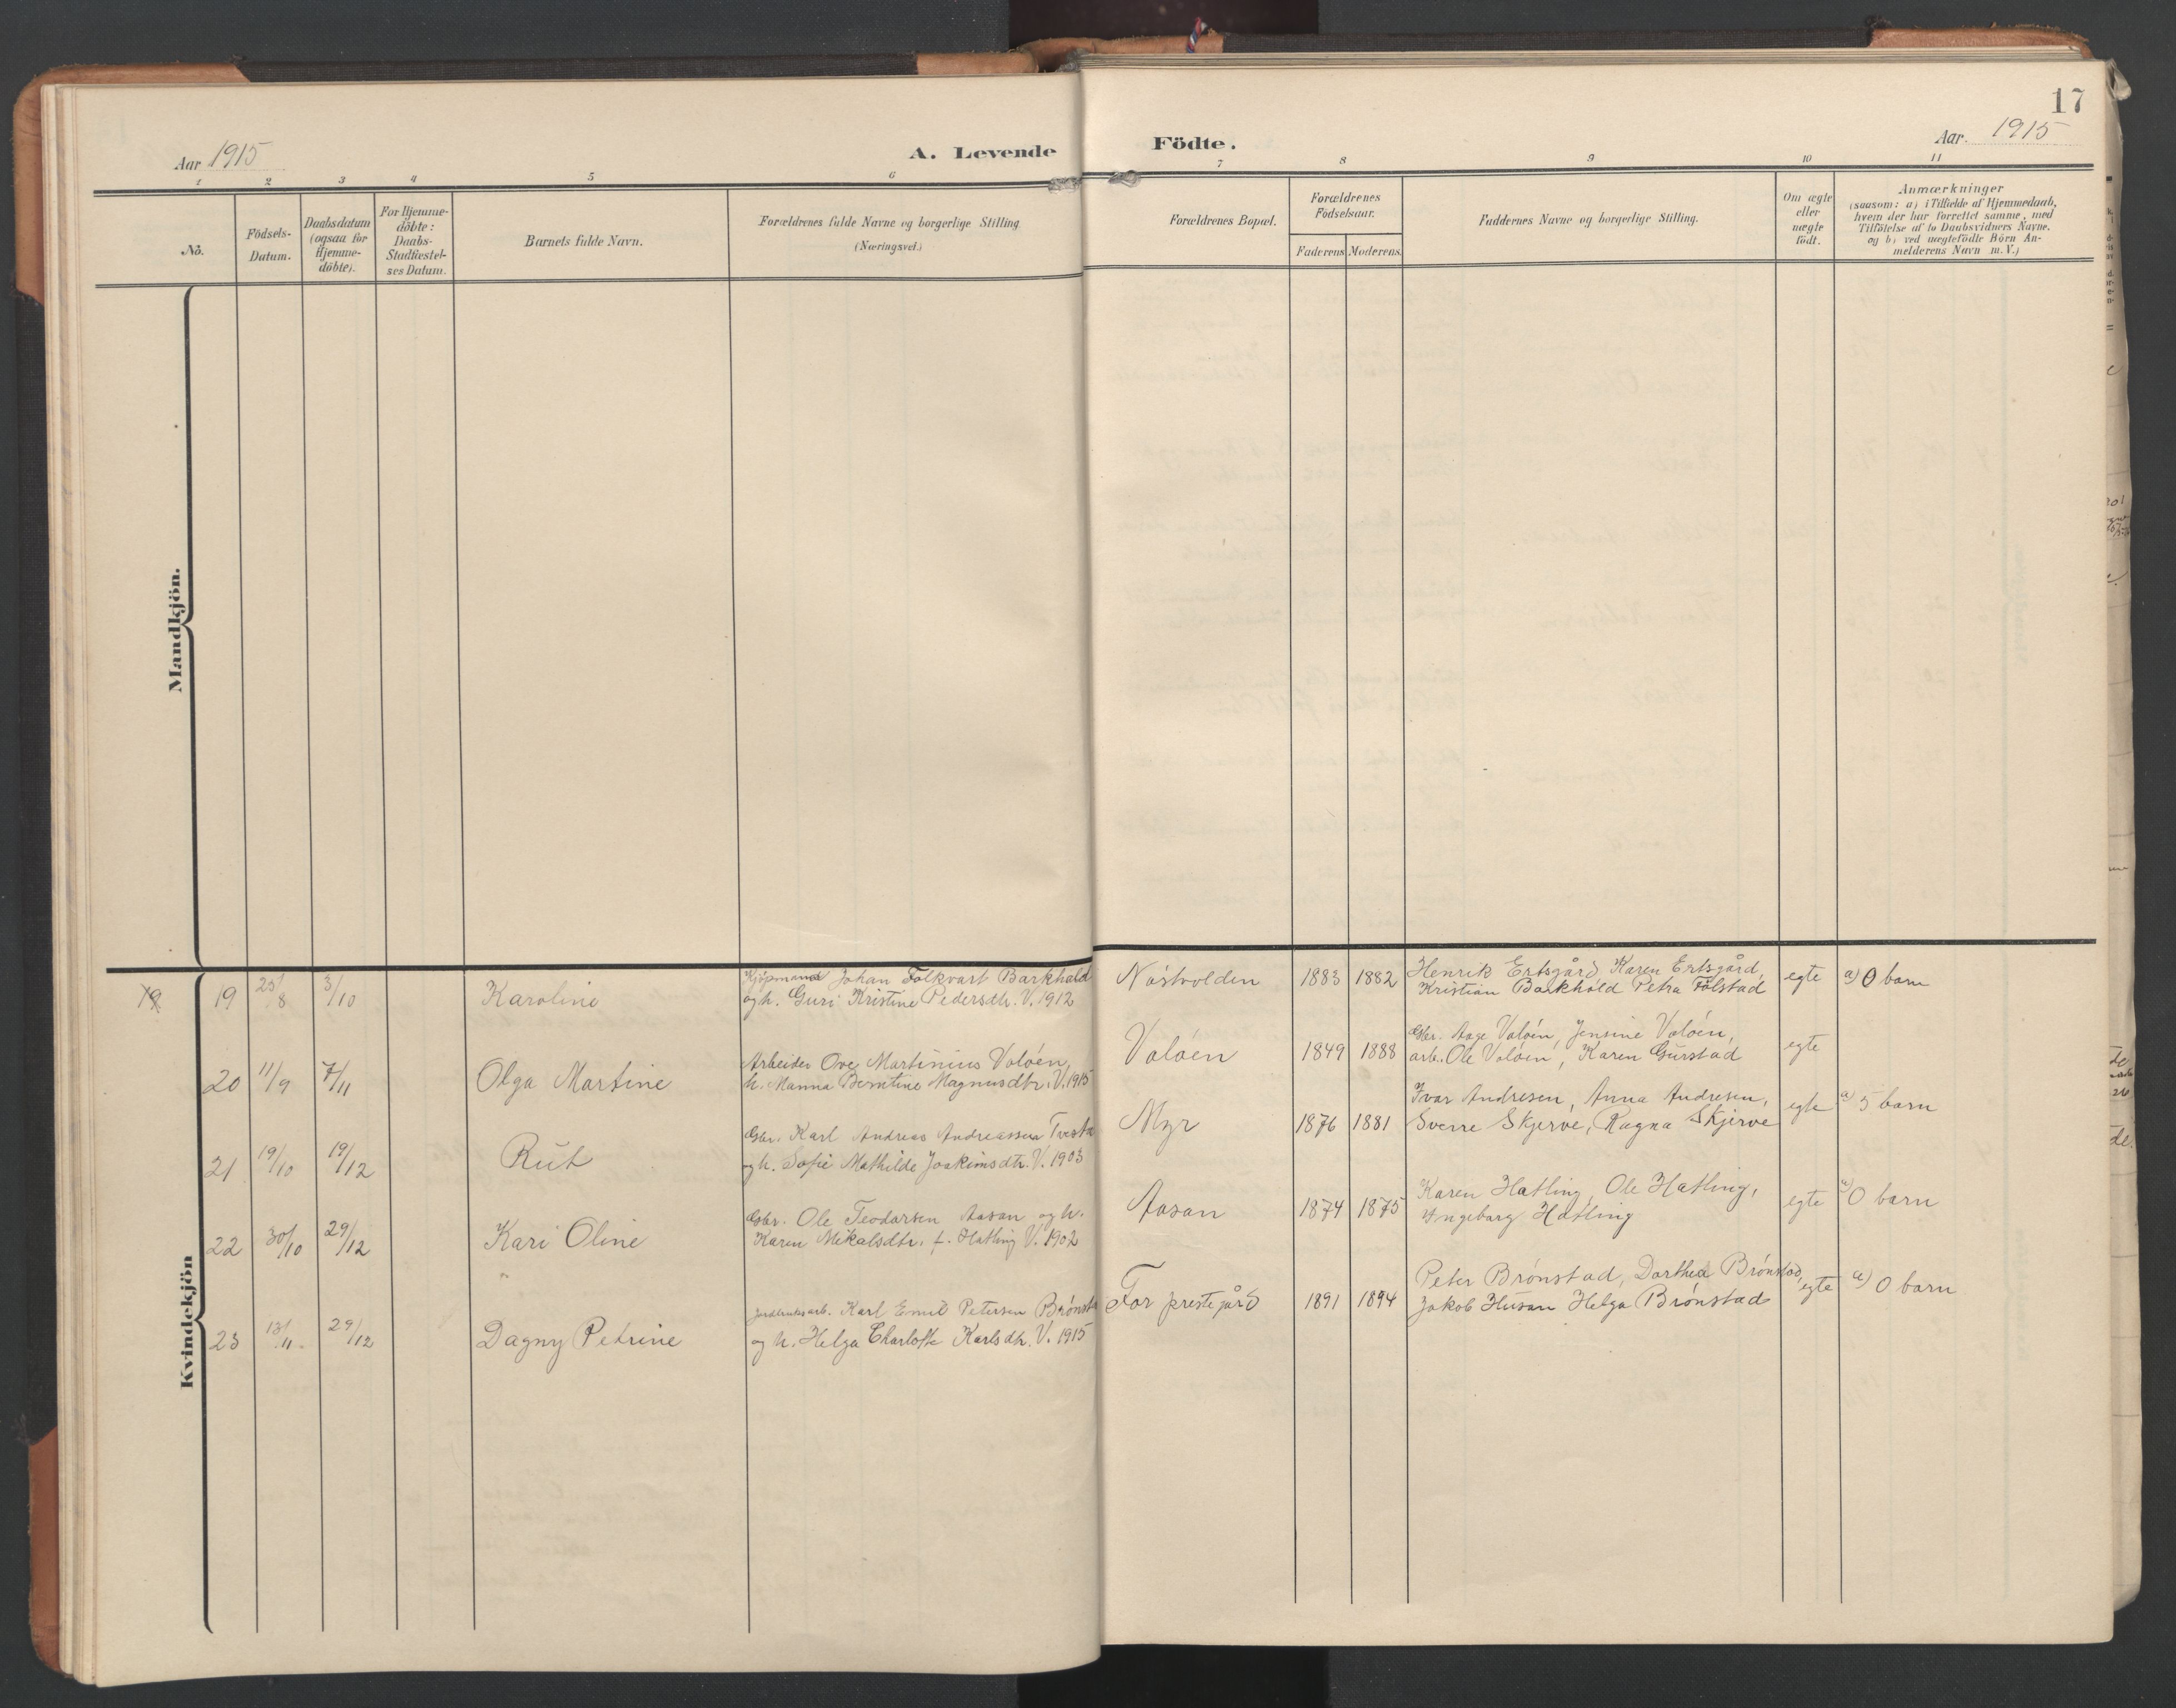 17
Aar 1915
A. Levende Födte.
Aar. 1915
1 2 3 4 5 6 7 8 9 10 11
No.
Födsels-
Datum.
Daabsdatum
(ogsaa for
Hjemme-
döbte).
For Hjemme-
döbte:
Daabs-
Stadfæstel-
ses Datum.
Barnets fulde Navn.
Forældrenes fulde Navne og borgerlige Stilling
(Næringsvei.)
Forældrenes Bopæl.
Forældrenes
Födselsaar.
Faderens Moderens.
Faddernes Navne og borgerlige Stilling.
Om ægte
eller
uægte
födt.
Anmærkninger
(saasom: a) i Tilfælde af Hjemmedaab,
hvem der har forrettet samme, med
Tilföielse af to Daabsvidners Navne.
og b) ved uægtefödte Börn An-
melderens Navn m. V.)
Mandkjön.
Kvindekjön
19 19 25/8 3/10 Karoline
Kjøpmand Johan Folkvart Barkhald
og h. Guri Kristine Pedersdtr. V. 1912
Nóstvolden 1883 1882
Henrik Ertsgård, Karen Ertsgård,
Kristian Barkhold Petra Følstad
egte a) 0 barn
20 11/9 7/11 Olga Martine
Arbeider Ove Martinius Valóen,
h. Manna Berntine Magnusdtr. V. 1915
Valóen 1849 1888
Gbr. Aage Valóen, Jensine Valóen,
arb. Ole Valóen, Karen Gurstad
egte
21 19/10 19/12 Rut
Gbr. Karl Andreas Andreassen
og h. Sofie Mathilde Joakimsdtr. V. 1903
Myr 1876 1881
Ivar Andresen, Anna Andresen,
Sverre Skjerve, Ragna Skjerve
egte a) 5 barn
22 30/10 29/12 Kari Oline
Gbr. Ole Teodorsen Aasan og h.
Karen Mikalsdtr. f. Hatling V. 1902
Aasan 1874 1875
Karen Hatling, Ole Hatling,
Ingeborg Hatling
egte a) 0 barn
23 13/11. 29/12 Dagny Petrine
Jordbruksarb. Karl Emil Petersen Brónsta
og h. Helga Charlotte Karlsdtr. V. 1915
For prestegård 1891 1894
Peter Brónstad, Dorthea Brónstad,
Jakob Husan Helga Brónstad
egte a) 0 barn